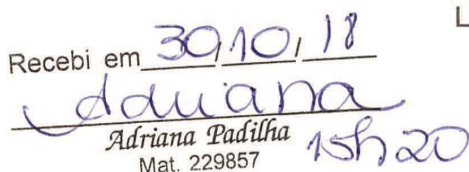 L
Recebi em 30/10/18
Adriana
Adriana Padilha
Mat. 229857 15h20